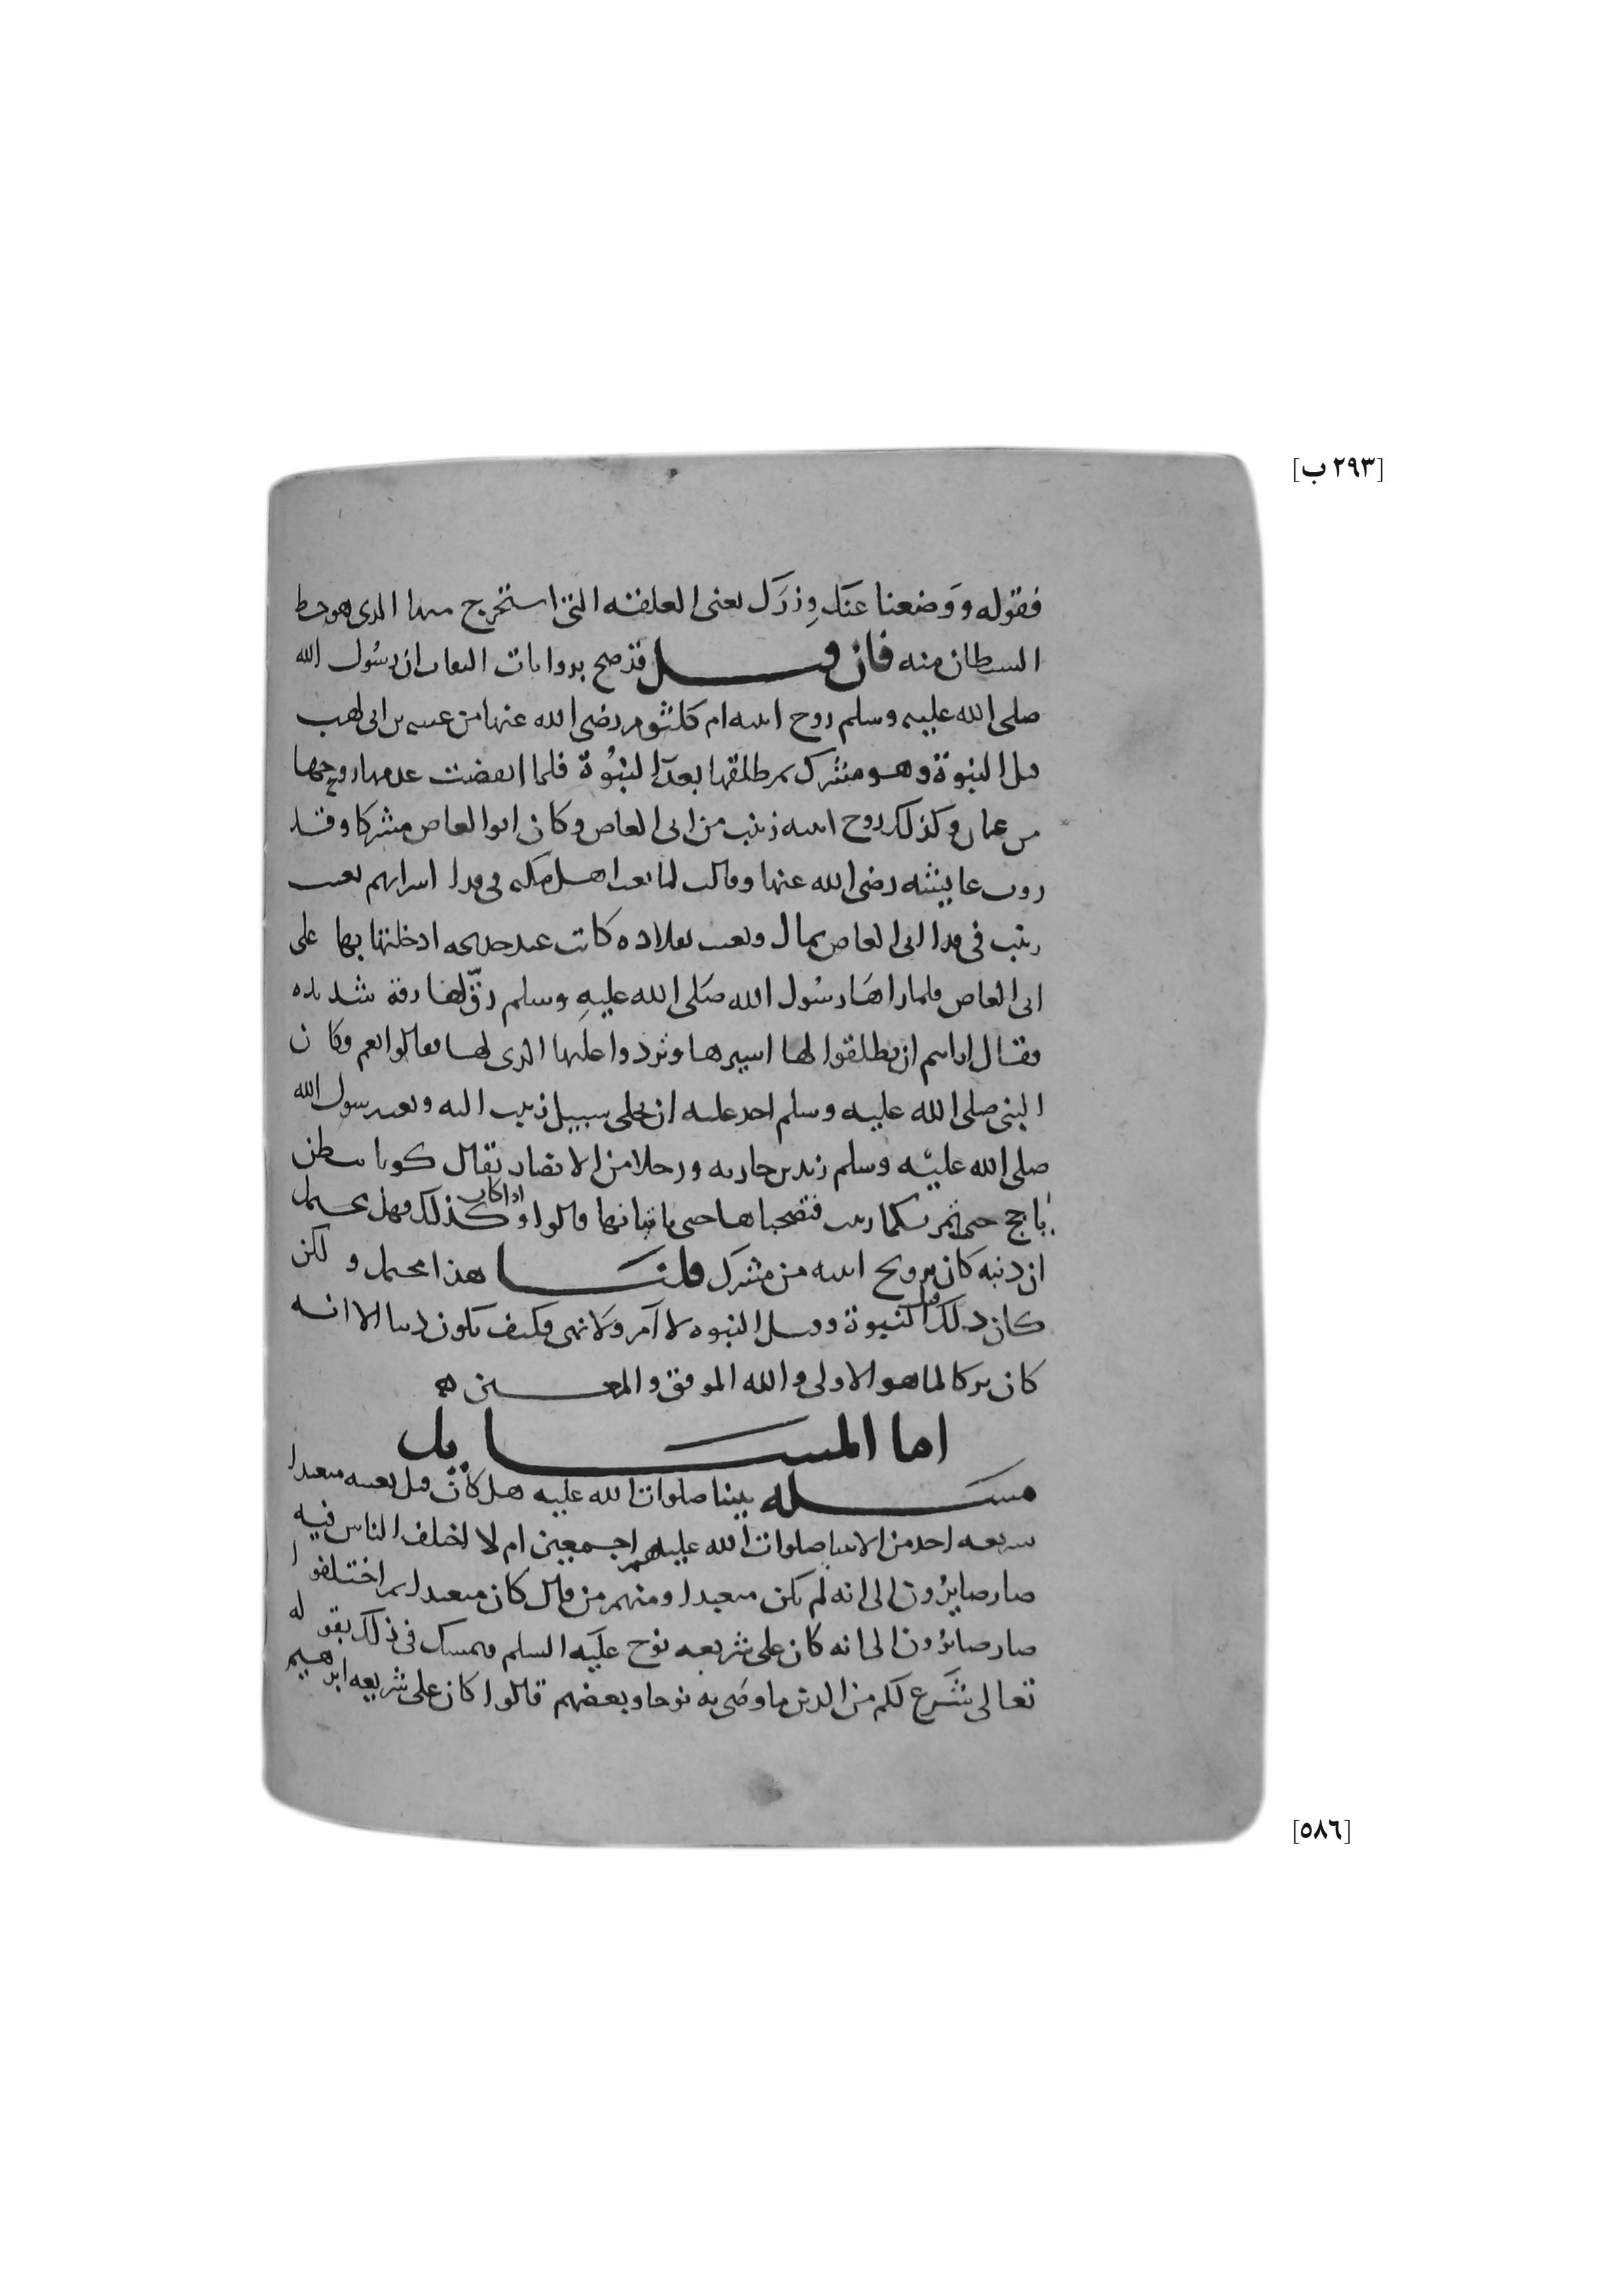 [٢٩٣ ب]
فقوله ووضعنا عنك وزرك يعنى العلقه التى استخرج منها الذى هو حظ
الشيطان منه فان قيل قد صح بروايات الثقات ان رسول الله
صلى الله عليه وسلم زوج ابنته ام كلثوم رضى الله عنها من عتبه بن ابى لهب
قبل النبوة وهو مشرك ثم طلقها بعد النبوة فلما انقضت عدتها زوجها
من عثمان وكذلك زوج ابنته زينب من ابى العاص وكان ابو العاص مشركا وقد
روت عايشه رضى الله عنها وقالت لما بعث اهل مكه فى فدا اسرايهم بعثت
زينب فى فدا ابى العاص بمال وبعثت بقلاده كانت عند خديجه ادخلتها بها على
ابى العاص فلما راها رسول الله صلى الله عليه وسلم رق لها رقة شديده
فقال ان رايتم ان تطلقوا لها اسيرها وتردوا عليها الذى لها فقالوا نعم وكان
النبى صلى الله عليه وسلم اخذ عليه ان يخلى سبيل زينب اليه وبعث رسول الله
صلى الله عليه وسلم زيد بن حارثه ورجلا من الانصار فقال كونا ببطن
ياجج حتى تمر بكما زينب فتصحباها حتى تاتيا بها قالوا واذا كان كذلك فهل يحتمل
ان ذنبه كان تزويج ابنته من مشرك قلنا هذا محتمل ولكن
كان ذلك قبل النبوة وقبل النبوه لا آمر ولا نهى فكيف يكون ذنبا الا انه
كان تركا لما هو الاولى والله الموفق والمعين ه
اما المسايل
مسله نبينا صلوات الله عليه هل كان قبل بعثه متعبدا
بشريعه احد من الانبيا صلوات الله عليهم اجمعين ام لا اختلف الناس فيه
صار صايرون الى انه لم يكن متعبدا ومنهم من قال كان متعبدا ثم اختلفوا
صار صايرون الى انه كان على شريعه نوح عليه السلم وتمسك فى ذلك بقوله
تعالى شرع لكم من الدين ما وصى به نوحا وبعضهم قالوا كان على شريعه ابرهيم
[٥٨٦]